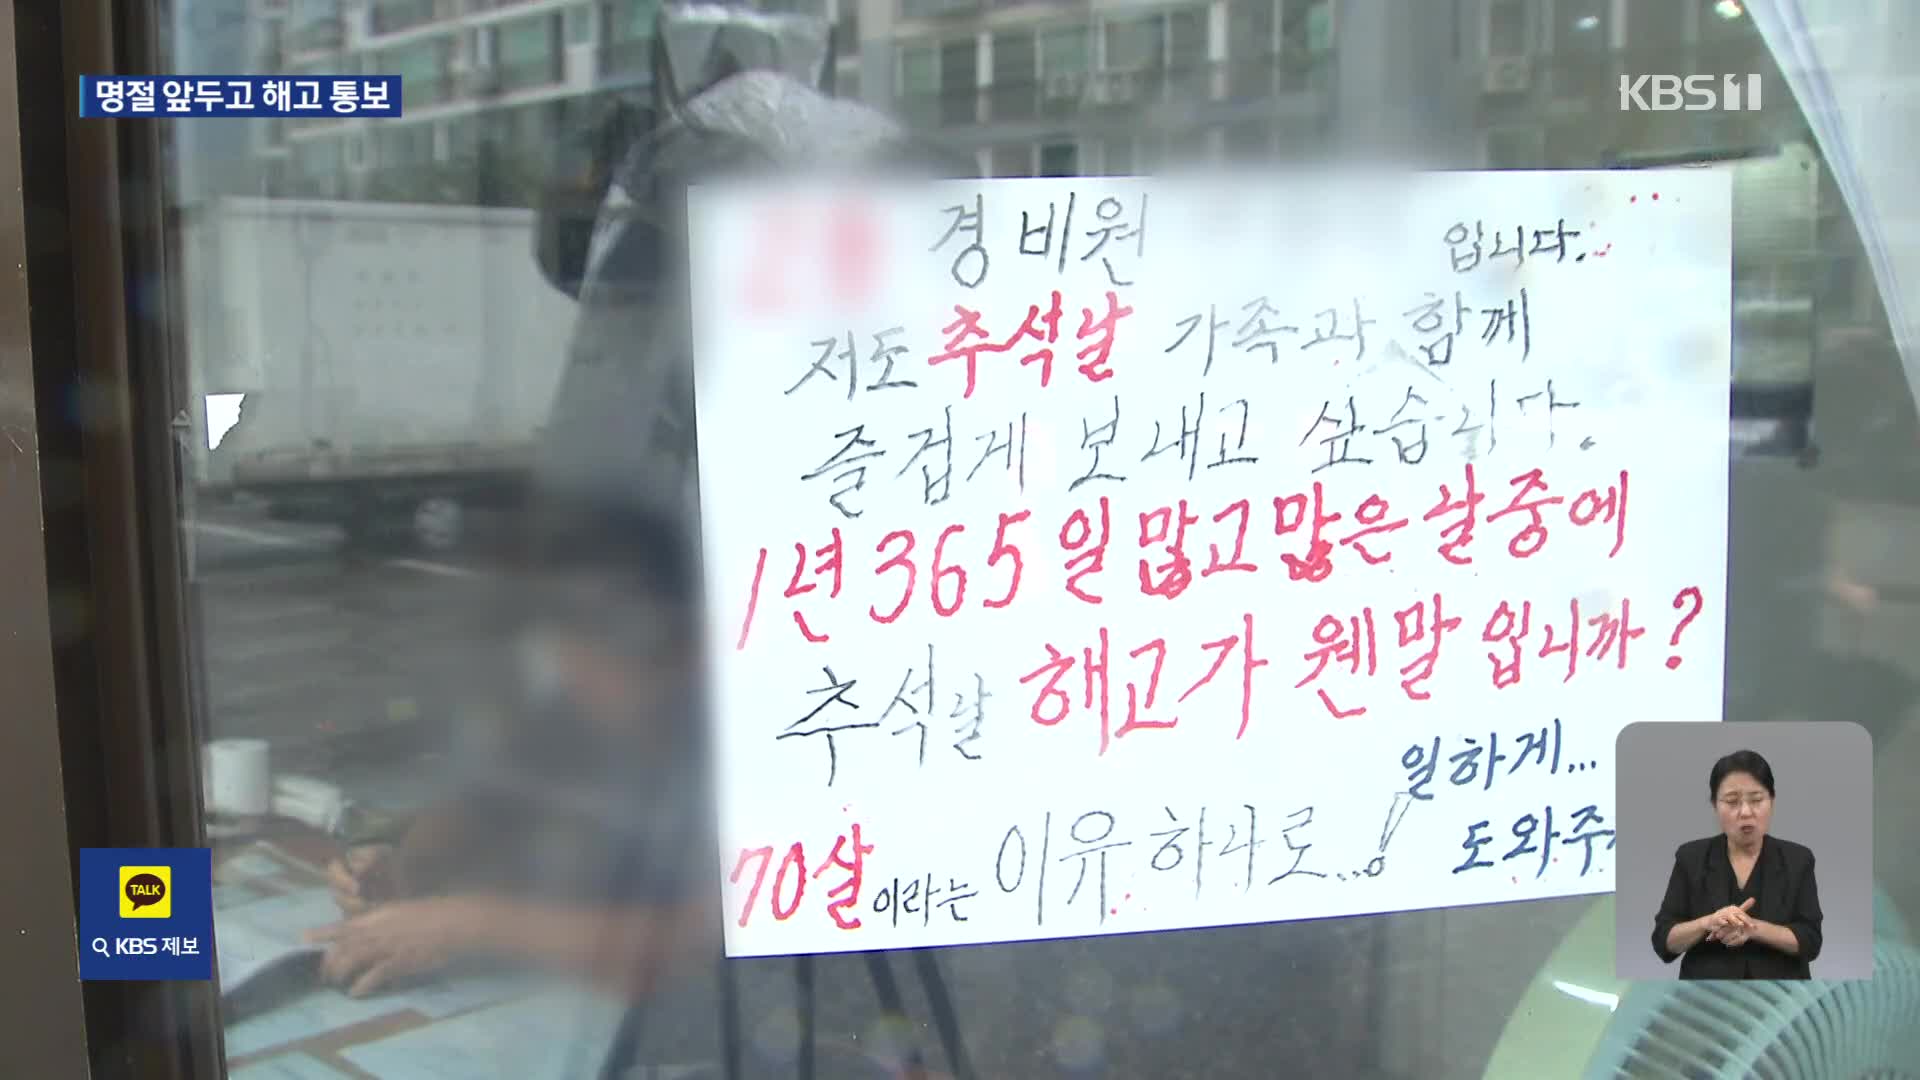 명절 앞두고 해고 통보
KBS 1
경비원 입니다.
저도 추석날 가족과 함께
즐겁게 보내고 싶습니다.
1년 365일 많고 많은 날 중에
추석날 해고가 웬말입니까?
일하게...
도와주
70살이라는 이유 하나로...!
TALK
KBS 제보